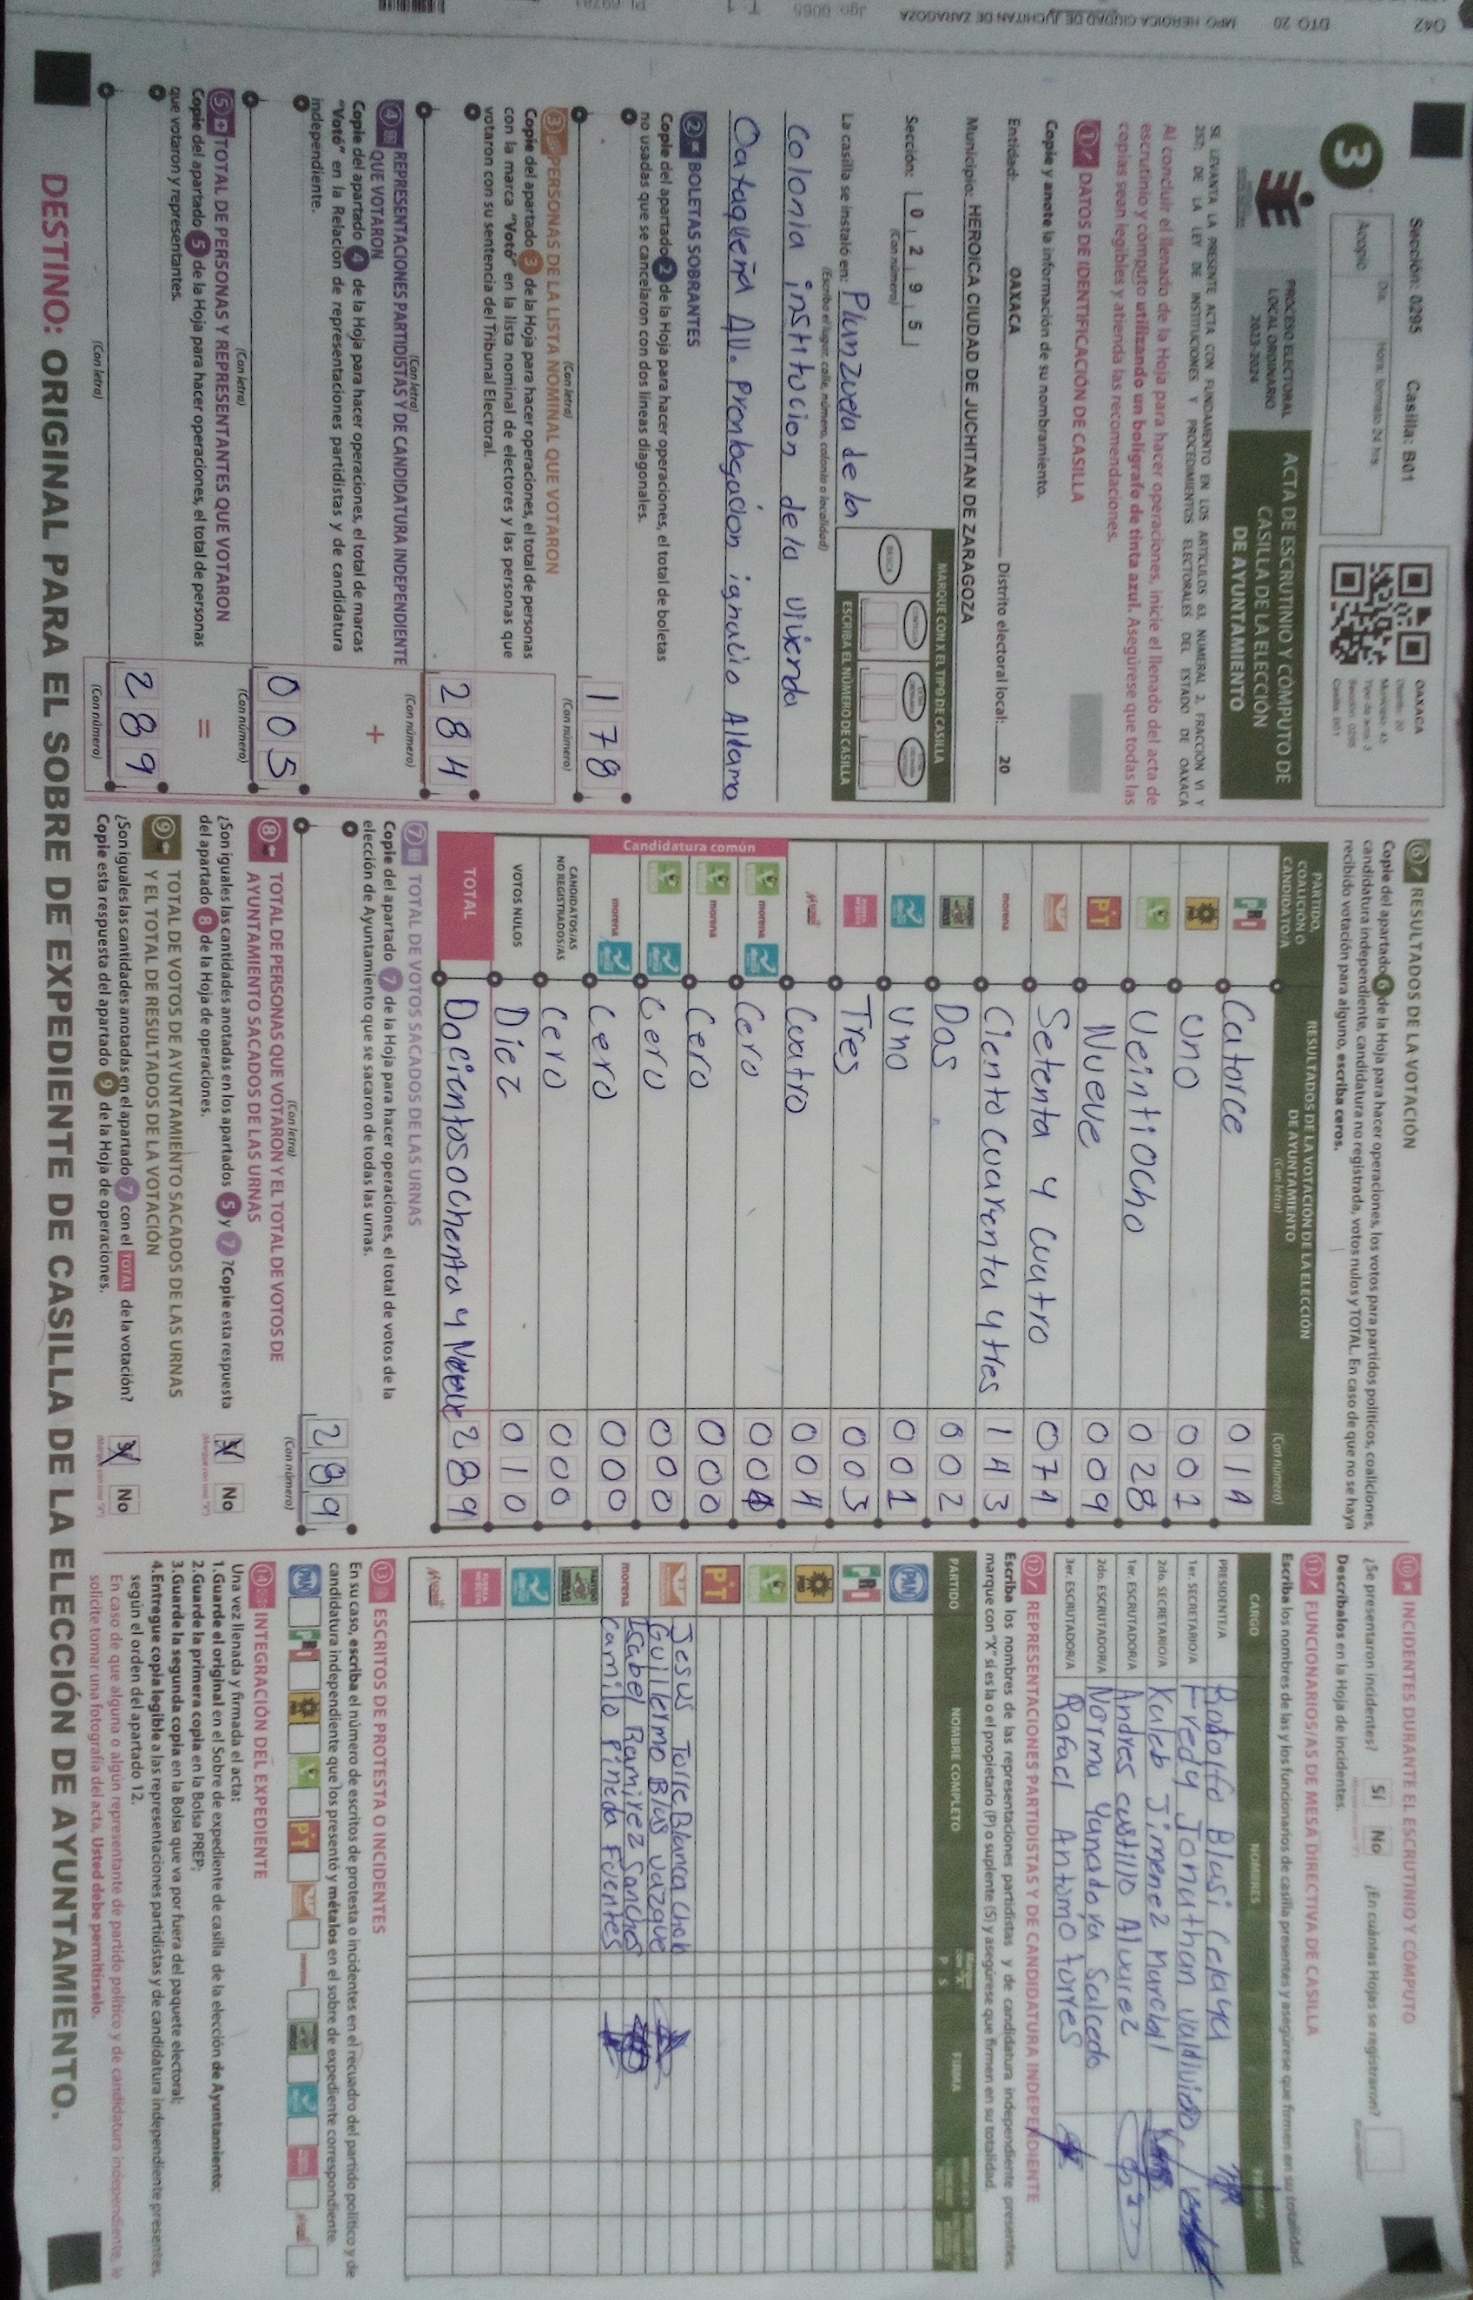 Sección: 0295 Casilla: B01
3
Acopio
Día
Hora: formato 24 hrs
OAXACA
Distrito: 20
Municipio: 43
Tipo de acta: 3
Sección: 0295
Casilla: B01
PROCESO ELECTORAL
LOCAL ORDINARIO
2023-2024
ACTA DE ESCRUTINIO Y CÓMPUTO DE
CASILLA DE LA ELECCIÓN
DE AYUNTAMIENTO
SE LEVANTA LA PRESENTE ACTA CON FUNDAMENTO EN LOS ARTÍCULOS 63, NUMERAL 2, FRACCIÓN VI Y
257, DE LA LEY DE INSTITUCIONES Y PROCEDIMIENTOS ELECTORALES DEL ESTADO DE OAXACA
Al concluir el llenado de la Hoja para hacer operaciones, inicie el llenado del acta de
escrutinio y cómputo utilizando un bolígrafo de tinta azul. Asegúrese que todas las
copias sean legibles y atienda las recomendaciones.
1 DATOS DE IDENTIFICACIÓN DE CASILLA
Copie y anote la información de su nombramiento.
Entidad: OAXACA Distrito electoral local: 20
Municipio: HEROICA CIUDAD DE JUCHITAN DE ZARAGOZA
Sección: 0 2 9 5
(Con número)
MARQUE CON X EL TIPO DE CASILLA
BÁSICA
ESCRIBA EL NÚMERO DE CASILLA
La casilla se instaló en: Planzuela de la
(Escriba el lugar, calle, número, colonia o localidad)
Colonia institucion de la vivienda
Oaxaqueña AV. Prontogacion ignacio Aldamo
2 BOLETAS SOBRANTES
Copie del apartado 2 de la Hoja para hacer operaciones, el total de boletas
no usadas que se cancelaron con dos líneas diagonales.
178
(Con letra) (Con número)
3 PERSONAS DE LA LISTA NOMINAL QUE VOTARON
Copie del apartado 3 de la Hoja para hacer operaciones, el total de personas
con la marca "Votó" en la lista nominal de electores y las personas que
votaron con su sentencia del Tribunal Electoral.
284
(Con letra) (Con número)
4 REPRESENTACIONES PARTIDISTAS Y DE CANDIDATURA INDEPENDIENTE
QUE VOTARON
+
Copie del apartado 4 de la Hoja para hacer operaciones, el total de marcas
"Votó" en la Relación de representaciones partidistas y de candidatura
independiente.
005
(Con letra) (Con número)
5 TOTAL DE PERSONAS Y REPRESENTANTES QUE VOTARON
=
Copie del apartado 5 de la Hoja para hacer operaciones, el total de personas
que votaron y representantes.
289
(Con letra) (Con número)
6 RESULTADOS DE LA VOTACIÓN
Copie del apartado 6 de la Hoja para hacer operaciones, los votos para partidos políticos, coaliciones,
candidatura independiente, candidatura no registrada, votos nulos y TOTAL. En caso de que no se haya
recibido votación para alguno, escriba ceros.
PARTIDO,
COALICIÓN O
CANDIDATO/A
RESULTADOS DE LA VOTACIÓN DE LA ELECCIÓN
DE AYUNTAMIENTO
(Con letra) (Con número)
PRI Catorce 014
PRD Uno 001
Veintiocho 028
PT Nueve 009
Setenta y Cuatro 074
morena Ciento Cuarenta y tres 143
Dos 002
Uno 001
Tres 003
Cuatro 004
Candidatura común
morena Cero 000
morena Cero 000
Cero 000
morena Cero 000
CANDIDATOS/AS
NO REGISTRADOS/AS Cero 000
VOTOS NULOS Diez 010
TOTAL Docientos ochenta y Nueve 289
7 TOTAL DE VOTOS SACADOS DE LAS URNAS
Copie del apartado 7 de la Hoja para hacer operaciones, el total de votos de la
elección de Ayuntamiento que se sacaron de todas las urnas.
289
(Con letra) (Con número)
8 TOTAL DE PERSONAS QUE VOTARON Y EL TOTAL DE VOTOS DE
AYUNTAMIENTO SACADOS DE LAS URNAS
¿Son iguales las cantidades anotadas en los apartados 5 y 7? Copie esta respuesta
del apartado 8 de la Hoja de operaciones.
X No
9 TOTAL DE VOTOS DE AYUNTAMIENTO SACADOS DE LAS URNAS
Y EL TOTAL DE RESULTADOS DE LA VOTACIÓN
¿Son iguales las cantidades anotadas en el apartado 7 con el TOTAL de la votación?
Copie esta respuesta del apartado 9 de la Hoja de operaciones.
X No
10 INCIDENTES DURANTE EL ESCRUTINIO Y CÓMPUTO
¿Se presentaron incidentes? Sí No ¿En cuántas Hojas se registraron?
Descríbalos en la Hoja de incidentes.
11 FUNCIONARIOS/AS DE MESA DIRECTIVA DE CASILLA
Escriba los nombres de las y los funcionarios de casilla presentes y asegúrese que firmen en su totalidad.
CARGO NOMBRES FIRMAS
PRESIDENTE/A Rodolfo Blasi Celaya
1er. SECRETARIO/A Fredy Jonathan Valdivieso
2do. SECRETARIO/A Kaleb Jimenez Marcial
1er. ESCRUTADOR/A Andres Castillo Alvarez
2do. ESCRUTADOR/A Norma Yanadova Salcedo
3er. ESCRUTADOR/A Rafael Antonio torres
12 REPRESENTACIONES PARTIDISTAS Y DE CANDIDATURA INDEPENDIENTE
Escriba los nombres de las representaciones partidistas y de candidatura independiente presentes,
marque con "X" si es la o el propietario (P) o suplente (S) y asegúrese que firmen en su totalidad.
PARTIDO NOMBRE COMPLETO P S FIRMA
PAN
PRI
PRD
PT
Jesus Torre Blanca Chok
Guillermo Blas Vazque
morena Isabel Ramirez Sanches
Camilo Pineda Fuentes
13 ESCRITOS DE PROTESTA O INCIDENTES
En su caso, escriba el número de escritos de protesta o incidentes en el recuadro del partido político y de
candidatura independiente que los presentó y métalos en el sobre de expediente correspondiente.
PAN PRI PRD PT
14 INTEGRACIÓN DEL EXPEDIENTE
Una vez llenada y firmada el acta:
1.Guarde el original en el Sobre de expediente de casilla de la elección de Ayuntamiento;
2.Guarde la primera copia en la Bolsa PREP;
3.Guarde la segunda copia en la Bolsa que va por fuera del paquete electoral;
4.Entregue copia legible a las representaciones partidistas y de candidatura independiente presentes,
según el orden del apartado 12.
En caso de que alguna o algún representante de partido político y de candidatura independiente, le
solicite tomar una fotografía del acta, Usted debe permitírselo.
DESTINO: ORIGINAL PARA EL SOBRE DE EXPEDIENTE DE CASILLA DE LA ELECCIÓN DE AYUNTAMIENTO.
042 DTO 20 MPO HEROICA CIUDAD DE JUCHITAN DE ZARAGOZA